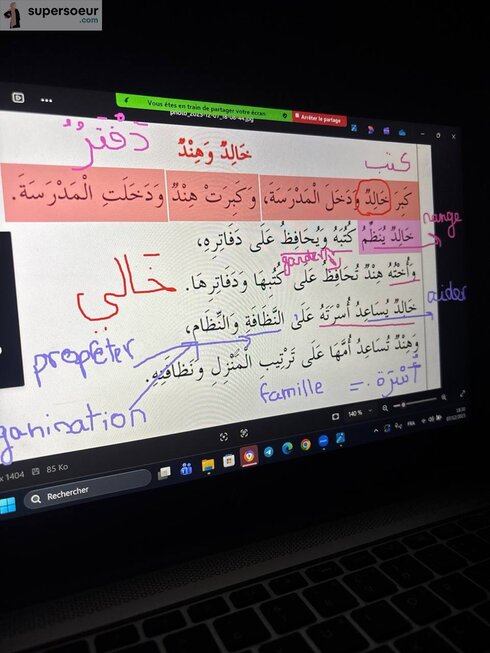 supersoeur
.com
Vous êtes en train de partager votre écran
Arrêter le partage
دَفْتَرٌ
خَالِدٌ وَهِنْدٌ
كتب
كَبِرَ خَالِدٌ وَدَخَلَ الْمَدْرَسَةَ، وَكَبِرَتْ هِنْدٌ وَدَخَلَتِ الْمَدْرَسَةَ.
range
خَالِدٌ يُنَظِّمُ كُتُبَهُ وَيُحَافِظُ عَلَى دَفَاتِرِهِ،
garder
وَأُخْتُهُ هِنْدٌ تُحَافِظُ عَلَى كُتُبِهَا وَدَفَاتِرِهَا.
خَالي
aider
خَالِدٌ يُسَاعِدُ أُسْرَتَهُ عَلَى النَّظَافَةِ وَالنِّظَامِ،
propreter
وَهِنْدٌ تُسَاعِدُ أُمَّهَا عَلَى تَرْتِيبِ الْمَنْزِلِ وَنَظَافَتِهِ.
famille = أُسْرَة
ganisation
140 %
x 1404
85 Ko
Rechercher
FRA
18:30
07/12/2025